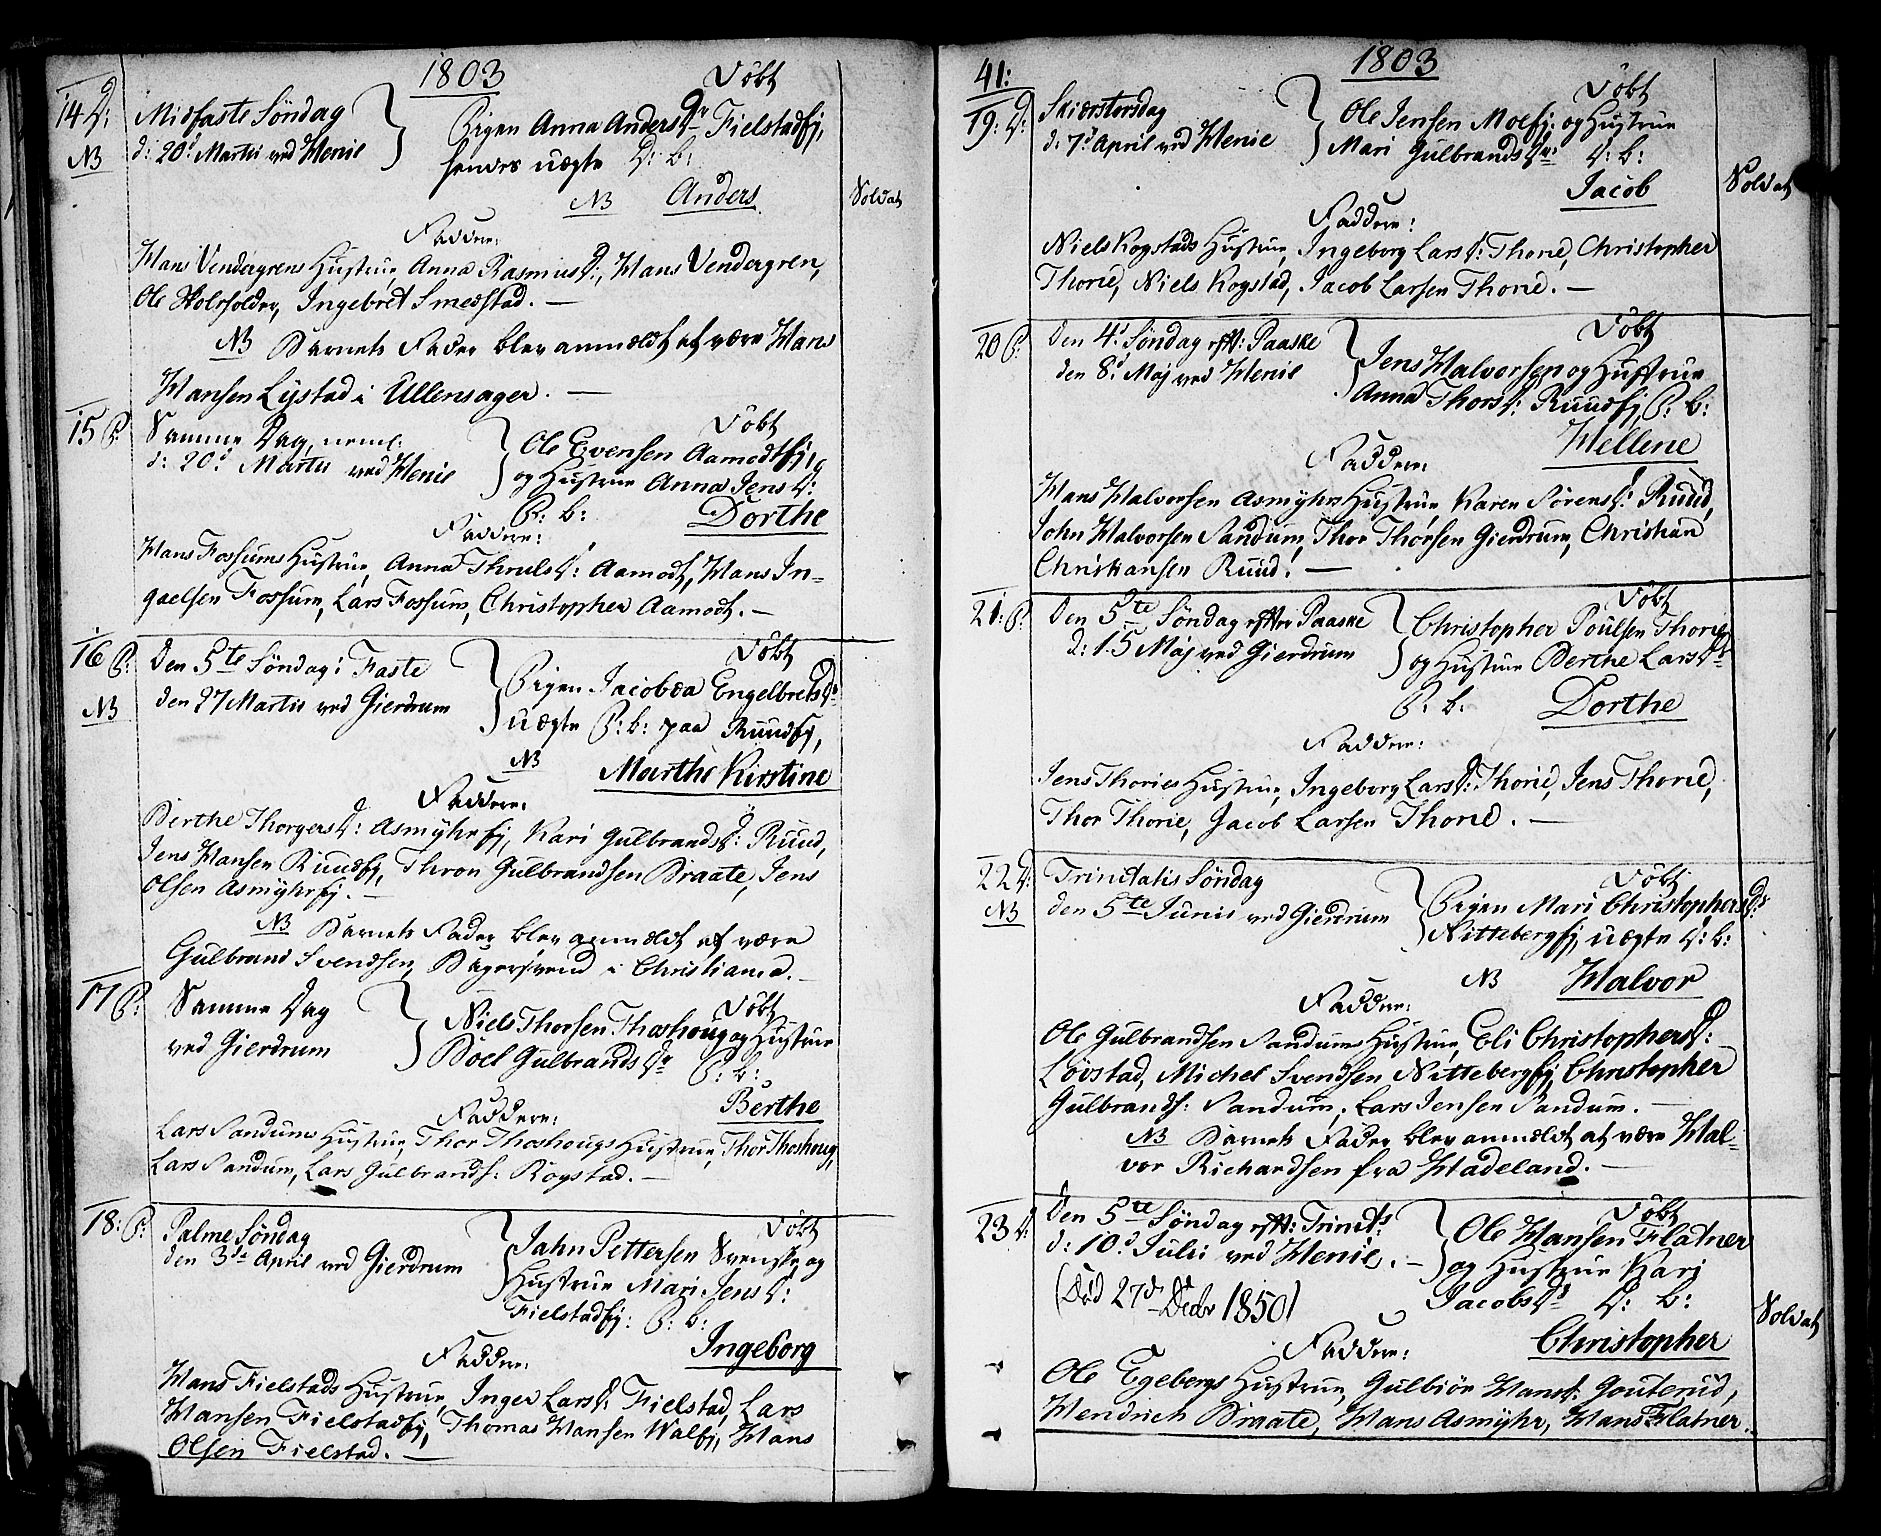 1803
Døbt
14 D: Midfaste Søndag
d: 20d Martii ved Henie
NB
Pigen Anna Andersdr Fielstadfj,
hendes uægte D: b:
NB Anders
Soldat
Faddere:
Hans Vendergrens Hustrue, Anna Rasmusd:, Hans Vendergren,
Ole Holefolder, Ingebret Smedstad. —
NB Barnets Fader blev anmældt at være Hans
Hansen Lystad i Ullensager. —
15 P: Samme Dag, neml:
d: 20d Martii ved Henie
Døbt
Ole Evensen Aamodtfj,
og Hustrue Anna Jensd:
P: b: Dorthe
Faddere:
Hans Fossums Hustrue, Anna Thrulsd: Aamodt, Hans In-
gaelsen Fossum, Lars Fossum, Christopher Aamodt. —
16 P: Den 5te Søndag i Faste
den 27 Martii ved Gierdrum
NB
Døbt
Pigen Jacobæa Engelbretsdr
uægte P: b: paa Ruudfj,
NB Marthe Kirstine
Faddere:
Berthe Thorgersd: Asmyhrfj, Kari Gulbrandsd: Ruud,
Jens Hansen Ruudfj, Thron Gulbrandsen Braate, Jens
Olsen Asmyhrfj. —
NB Barnets Fader blev anmældt at være
Gulbrand Svendsen, Bagersvend i Christiania. —
17 P: Samme Dag
ved Gierdrum
Døbt
Niels Thorsen Thoshoug og Hustrue
Boel Gulbrandsdr P: b:
Berthe
Faddere:
Lars Sandums Hustrue, Thor Thoshougs Hustrue, Thor Thoshoug,
Lars Sandum, Lars Gulbrands: Rogstad. —
18: P: Palme Søndag
den 3die April ved Gierdrum
Døbt
Jahn Pettersen Svenske, og
Hustrue Mari Jensd:
Fielstadfj: P: b:
Ingeborg
Faddere:
Hans Fielstads Hustrue, Inger Larsd: Fielstad, Lars
Hansen Fielstadfj, Thomas Hansen Walfj, Hans
Olsen Fielstad. —
41:
1803
Døbt
19: D: Skiærstorsdag
d: 7d April ved Henie
Ole Jensen Moefj: og Hustrue
Mari Gulbrandsdr: D: b:
Jacob
Soldat
Faddere:
Niels Rogstads Hustrue, Ingeborg Larsd: Thorie, Christopher
Thorie, Niels Rogstad, Jacob Larsen Thorie. —
20 P: Den 4d Søndag efft: Paaske
den 8d Maj ved Henie
Døbt
Jens Halvorsen og Hustrue
Anna Thorsd: Ruudfj, P: b:
Hellene
Faddere:
Hans Halvorsen Asmyhrs Hustrue, Karen Sørensd: Ruud,
John Halvorsen Sandum, Thor Thorsen Gierdrum, Christian
Christiansen Ruud. —
21: P: Den 5te Søndag effter Paaske
d: 15 Maj ved Gierdrum
Døbt
Christopher Poulsen Thorie
og Hustrue Berthe Larsdr
P: b: Dorthe
Faddere:
Jens Thories Hustrue, Ingeborg Larsd: Thorie, Jens Thorie,
Thor Thorie, Jacob Larsen Thorie. —
22 D: Trinitatis Søndag
den 5te Junii ved Gierdrum
NB
Døbt
Pigen Mari Christophersdr
Nittebergfj, uægte D: b:
NB Halvor
Faddere:
Ole Gulbrandsen Sandums Hustrue, Eli Christophersd:
Løvstad, Michel Svendsen Nittebergfj, Christopher
Gulbrands: Sandum, Lars Jensen Sandum. —
NB Barnets Fader blev anmældt at være Hal-
vor Richardsen fra Hadeland. —
23 D: Den 5te Søndag efft: Trinits
d: 10d Julii ved Henie. —
(Død 27d Decbr 1850)
Døbt
Ole Hansen Flatner
og Hustrue Kari
Jacobsdr D: b:
Christopher
Soldat
Faddere:
Ole Egebergs Hustrue, Gulbiør Hansd: Gouterud,
Hendrich Braate, Hans Asmyhr, Hans Flatner.